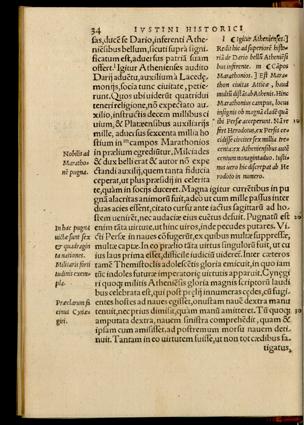 34 IVSTINI HISTORICI
sas, ducẽ se Dario, inferenti Athe-
niẽsibus bellum, sicuti suprà signi-
ficatum est, aduersus patriã suam
offert. Igitur Athenienses audito
Darij aduẽtu, auxilium à Lacedę-
monijs, socia tunc ciuitate, petie-
runt. Quos ubi uiderũt quatridui
teneri religione, nõ expectato au-
xilio, instructis decem millibus ci-
uium, & Platæensibus auxiliaribus
mille, aduersus sexcenta millia ho-
stium in campos Marathonios
in prælium egrediũtur. Milciades
& dux belli erat & autor nõ expe
ctandi auxilij, quem tanta fiducia
ceperat, ut plus præsidij in celerita
te, quàm in socijs duceret. Magna igitur currẽtibus in pu-
gnã alacritas animorũ fuit, adeò ut cum mille passus inter
duas acies essent, citato cursu ante iactus sagittarũ ad ho-
stem uenirẽt, nec audaciæ eius euẽtus defuit. Pugnatũ est
enim tanta uirtute, ut hinc uiros, inde pecudes putares. Vi
cti Persæ in naues cõfugerũt, ex quibus multæ suppressæ,
multæ captæ. In eo prælio tãta uirtus singulorũ fuit, ut cu
ius laus prima esset, difficile iudiciũ uideret. Inter cæteros
tamẽ Themistoclis adolescẽtis gloria emicuit, in quo iam
tũc indoles futuræ imperatorię uirtutis apparuit. Cynęgi
ri quoq; militis Atheniẽsis gloria magnis scriptorũ laudi
bus celebrata est, qui post prælij innumeras cędes, cũ fugi-
entes hostes ad naues egisset, onustam nauẽ dextra manu
tenuit, nec prius dimisit, quàm manũ amitteret. Tũ quoq;
amputata dextra, nauem sinistra comprehẽdit, quam &
ipsam cum amisisset, ad postremum morsu nauem deti-
nuit. Tantam in eo uirtutem fuisse, ut non tot cædibus fa-
tigatus,
Igitur Athenienses.]
Redit hic ad superiorẽ histo-
riã de Dario bellũ Atheniẽsi-
bus inferente.
Marathonios. ] Est Mara-
thon ciuitas Atticæ, haud
Marathonius campus, locus
Nobilis ad
Maratho
nẽ pugna.
In hac pugna
Militaris forti
tudinis exem-
pla.
Præclarum fa
cinus Cynæ-
giri.
10
20
30